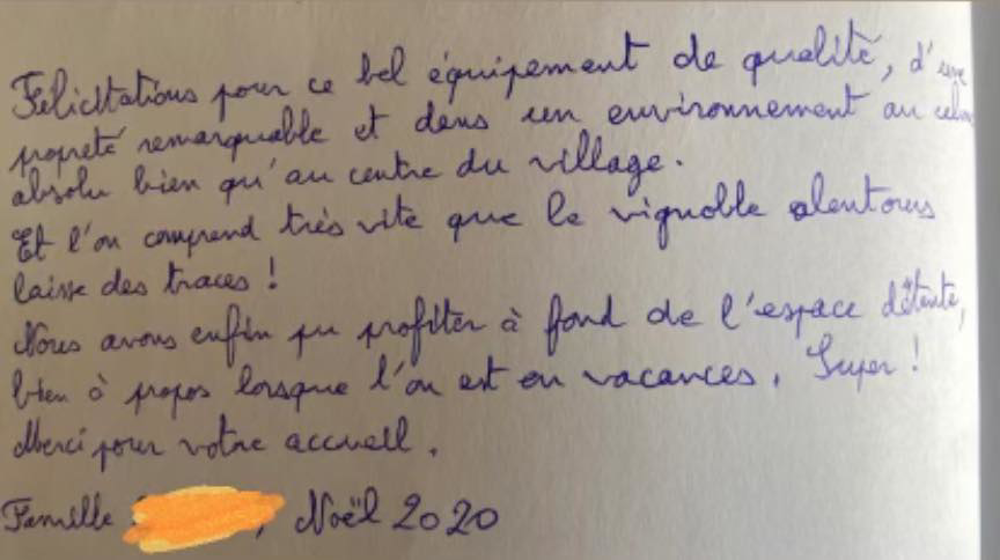 Félicitations pour ce bel équipement de qualité, d'une
propreté remarquable et dans un environnement au calme
absolu bien qu'au centre du village.
Et l'on comprend très vite que le vignoble alentours
laisse des traces !
Nous avons enfin pu profiter à fond de l'espace détente,
bien à propos lorsque l'on est en vacances. Super !
Merci pour votre accueil.
Famille , Noël 2020